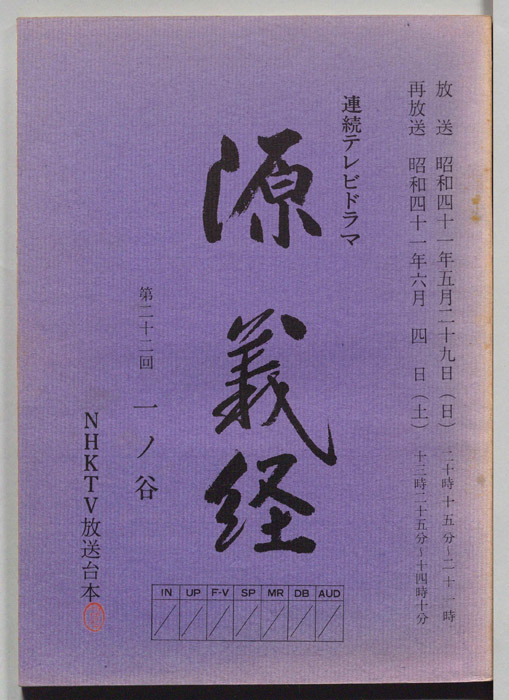 放送 昭和四十一年五月二十九日（日） 二十時十五分～二十一時
再放送 昭和四十一年六月四日（土） 十三時二十五分～十四時十分
連続テレビドラマ
源義経
第二十二回 一ノ谷
NHKTV放送台本
IN UP F-V SP MR DB AUD